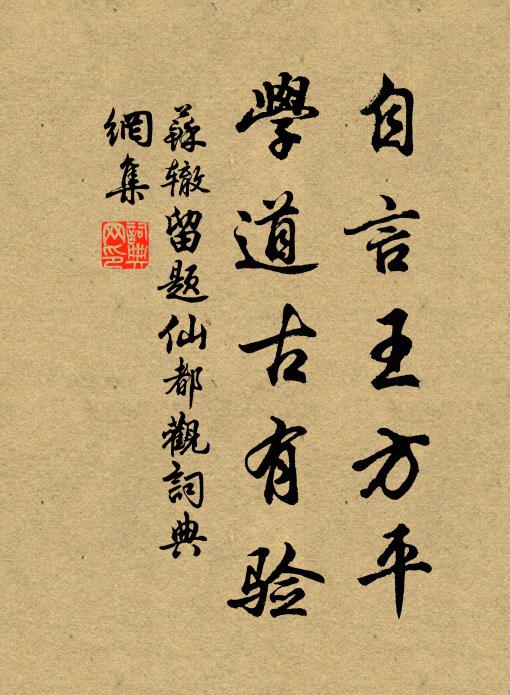 自言王方平
學道古有验
蘇辙留题仙都觀詞典
網集
詞典网印